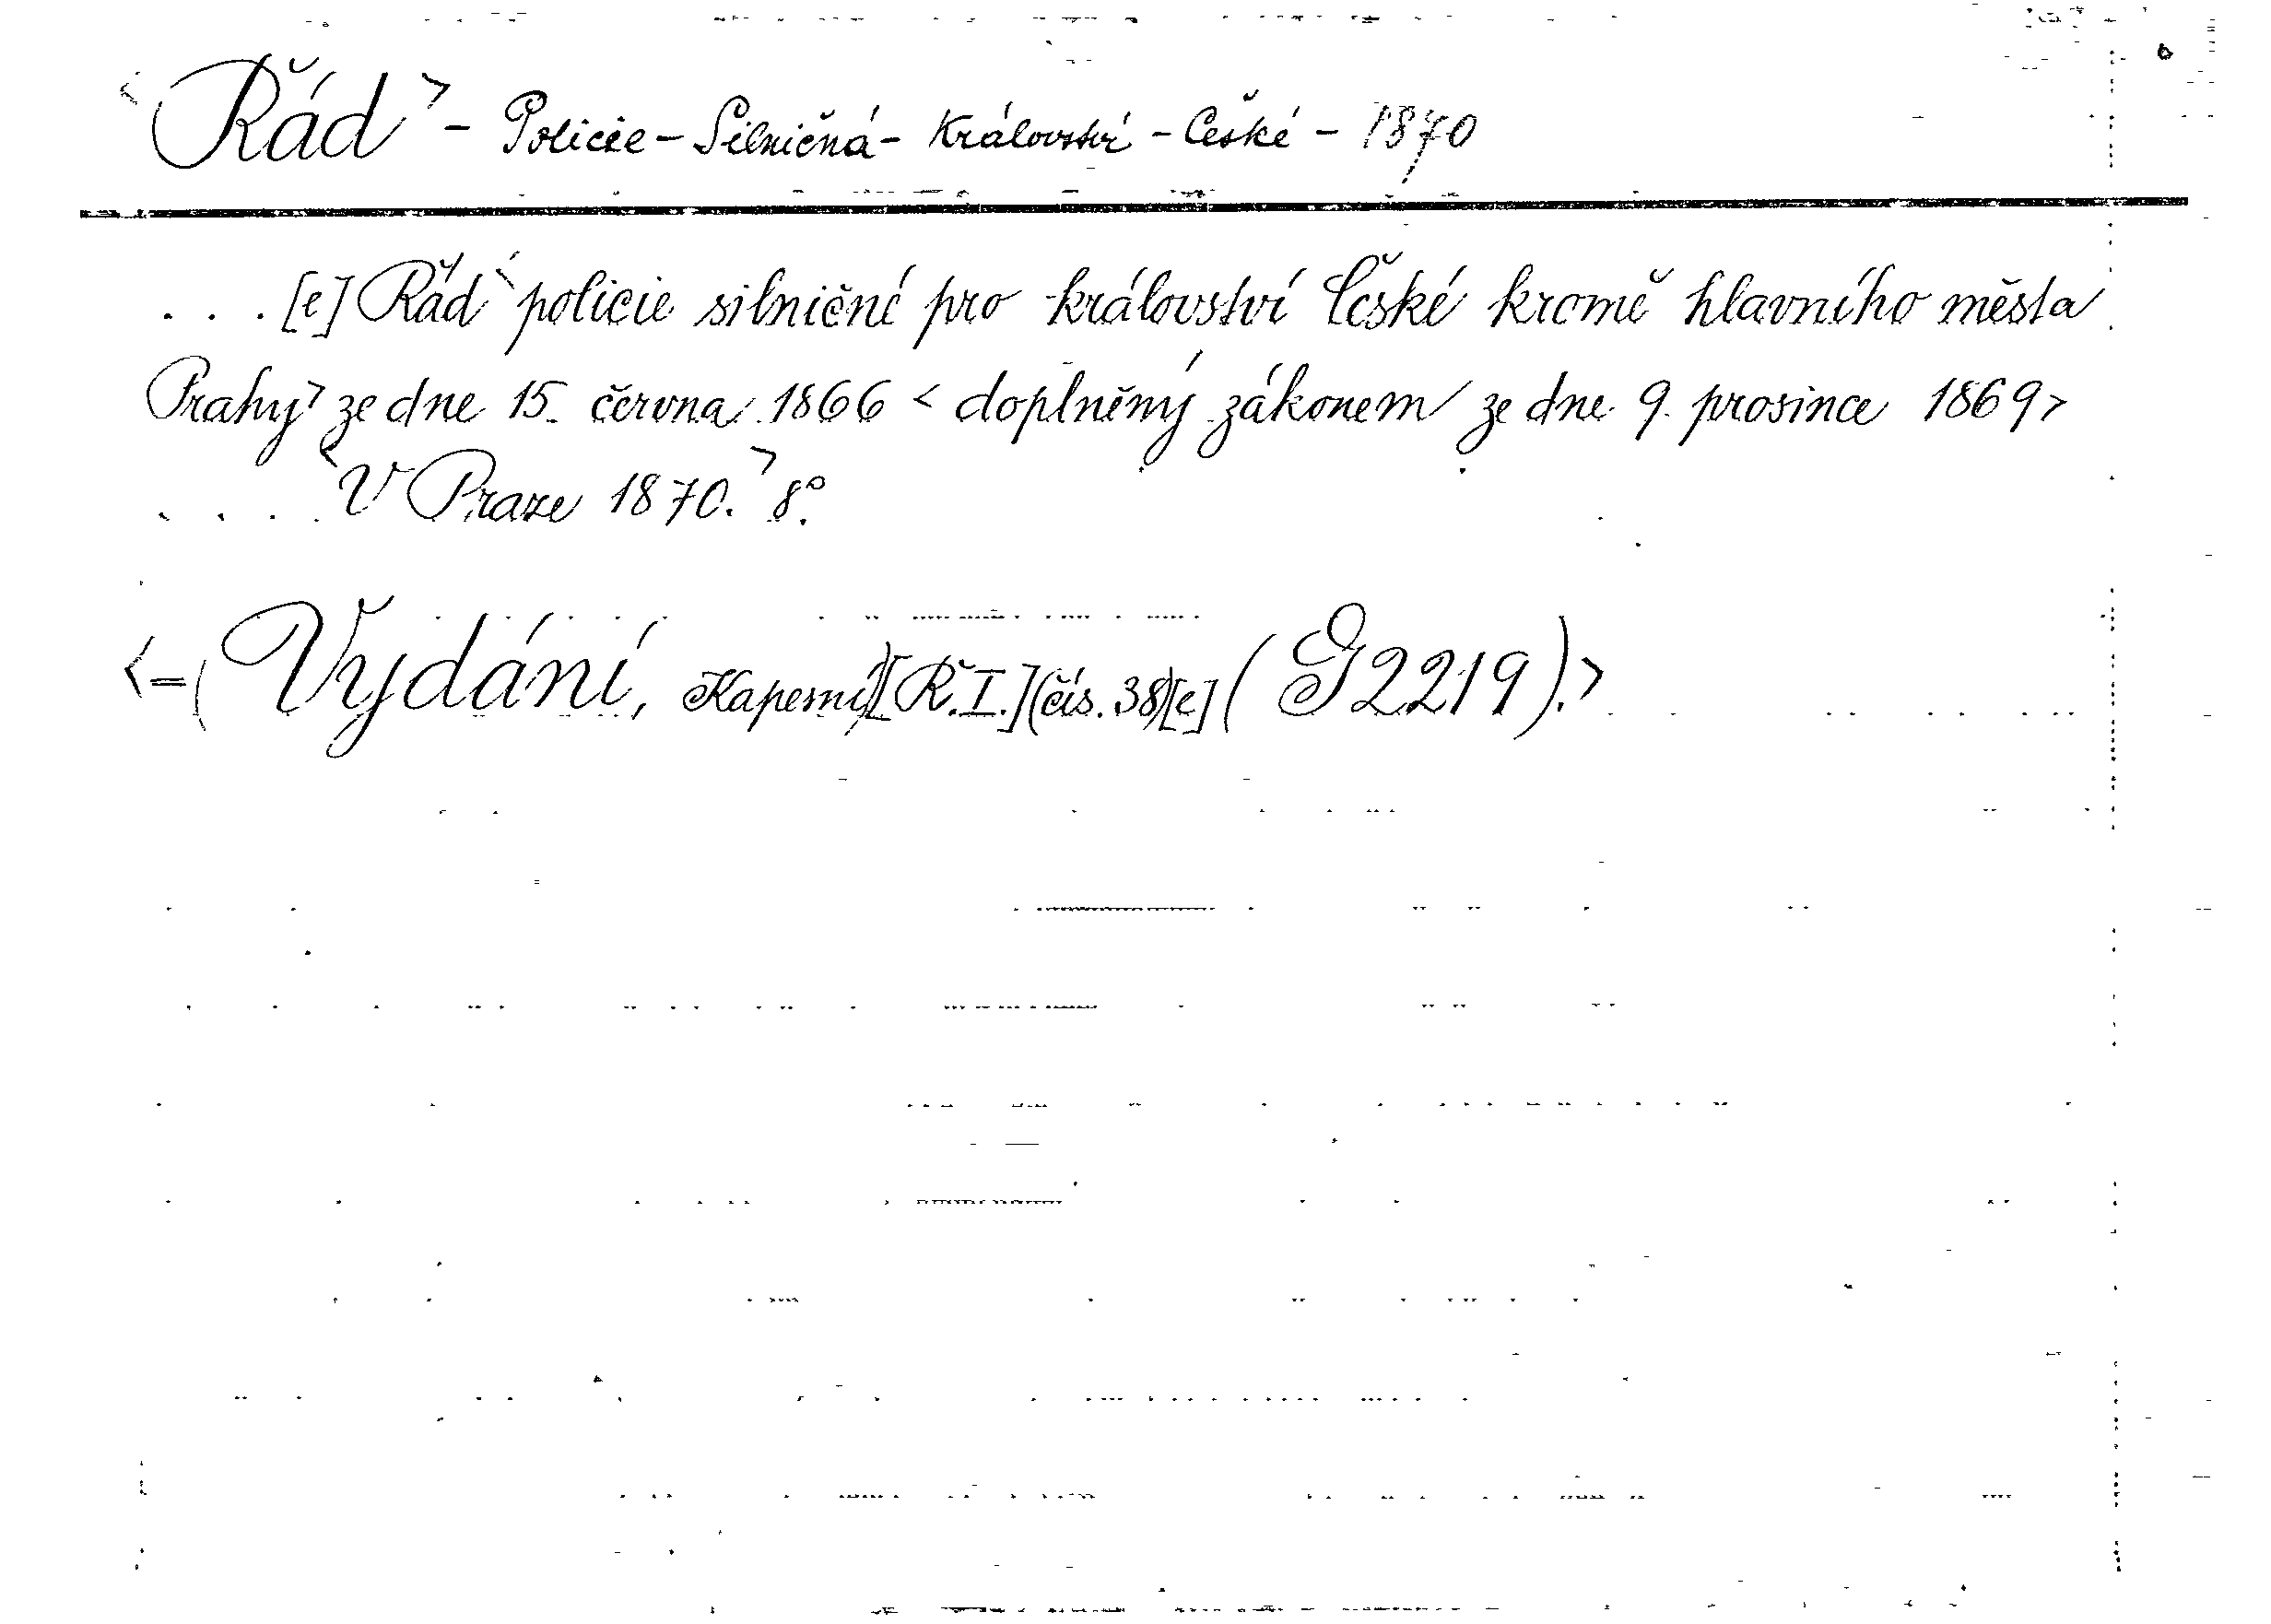 <Řád> - Policie - Silničná - Království - České - 1870
. . . [e] Řád <policie silničné pro království České kromě hlavního města
Prahy> ze dne 15. června 1866 < doplněný zákonem ze dne 9. prosince 1869>
. . . . <V Praze 1870.> 8°.
<=(Vydání, Kapesní)[Ř.I.](čís. 38)[e] (G 2219).>